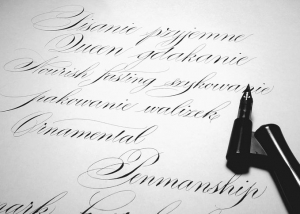 Pisanie przyjemne
Queen gdakanie
Nourish fasting szykowanie
pakowanie walizek
Ornamental
Penmanship